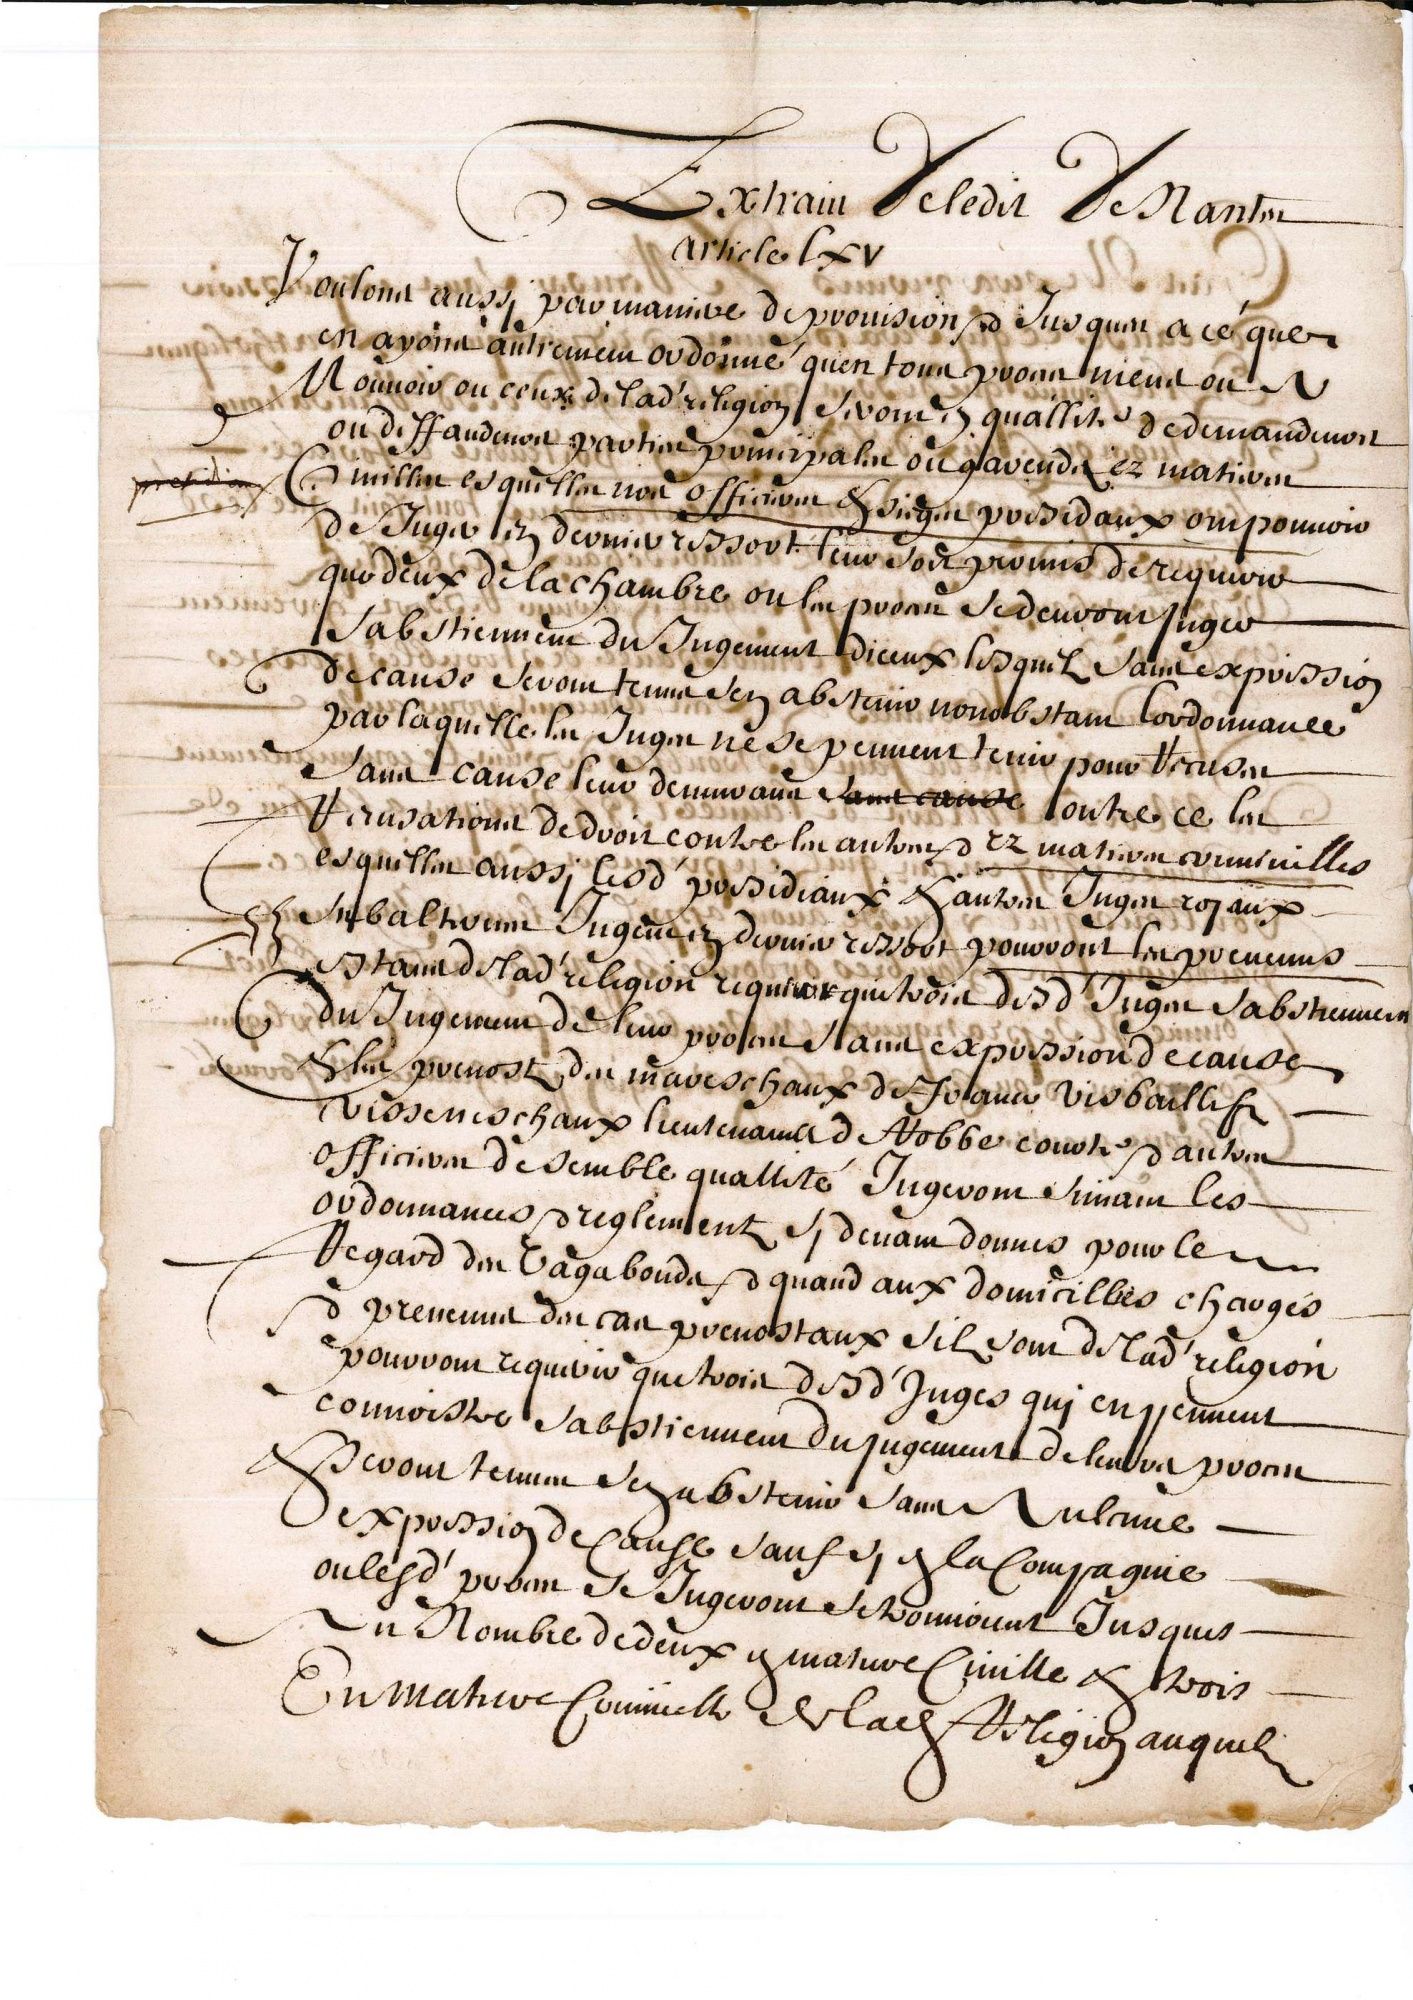 Extraict de ledit de Nantes
Article lxv
Voulons aussi par maniere de provision et Jusques a cé que
en ayóns autrement ordonné quen tous proces meus ou a
Mouvoir ou ceux de lad' religion seront en quallité de demandeurs
ou deffandeurs parties principales ou garends ez matieres
presidiaux
Civilles esquelles nos officiers & sieges presidaux ont pouvoir
de Juger en dernier ressort leur soit promis de requerir
que deux de la chambre ou les proces se devront Juger
sabstiennent du Jugement diceux lesquelz sans expression
de cause seront tenus sen abstenir nonobstant lordonnance
par laquelle les Juges ne se peuvent tenir pour recuses
sans cause leur demeurans sans cause outre ce les
recusations de droit contre les autres et ez matieres criminelles
esquelles aussi lesd' presidiaux & autres Juges royaux
subalternes Jugent en dernier ressort pourront les prevenus
estans de lad' religion requerir que trois desd' Juges sabstiennent
du Jugement de leur proces sans expression de cause
& les prevostz des mareschaux de france visbaillifz
visseneschaux lieutenants de robbe courte et autres
officiers de semble quallité Jugeront suivant les
ordonnances et reglementz cy devant donnés pour le
regard des vagabonds et quand aux domicilliés chargés
et prevenus des cas prevostaux silz sont de lad' religion
pourront requerir que trois desd' Juges qui en peuvent
connoistre sabstiennent du jugement de leurs proces
& seront tenus sen abstenir sans aulcune
expression de cause sauf sy en la Compagnie
ou lesd' proces se Jugeront se trouvoient Jusques
au Nombre de deux en matiere Civille & trois
En matiere Criminelle de lad Religion auquel